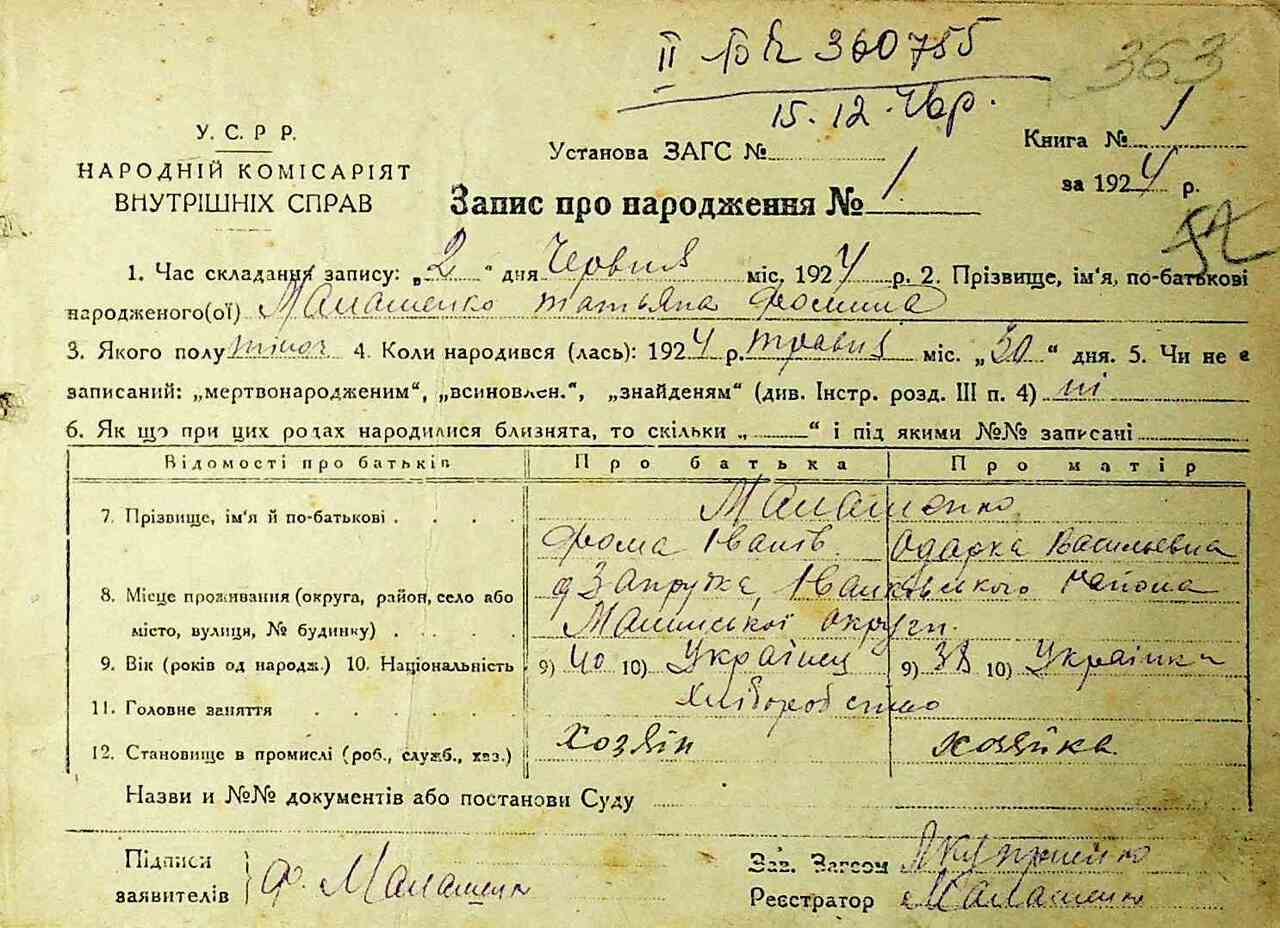 II 360755
363
15.12.
У. С. Р. Р.
НАРОДНІЙ КОМІСАРІЯТ
ВНУТРІШНІХ СПРАВ
Установа ЗАГС №
Книга № 1
за 1924 р.
Запис про народження № 1
1. Час складання запису: „2" дня Червня міс. 1924 р. 2. Прізвище, ім'я, по-батькові
народженого(ої) Малашенко татьяна Фомина
3. Якого полу жіноч 4. Коли народився (лась): 1924 р. травня міс. „30" дня. 5. Чи не є
записаний: „мертвонародженим", „всиновлен.", „знайденям" (див. Інстр. розд. III п. 4) ні
6. Як що при цих родах народилися близнята, то скільки „ " і під якими №№ записані
Відомості про батьків Про батька Про матір
7. Прізвище, ім'я й по-батькові . . . . Малашенко
Фома Іванів Одарка Васильевна
8. Місце проживання (округа, район, село або д Запрутка, Іванківського района
місто, вулиця, № будинку) . . . . Малинської округи.
9. Вік (років од народж.) 10. Національність . 9) 40 10) Українец 9) 38 10) Українка
11. Головне заняття . . . . . Хліборобство
12. Становище в промислі (роб., служб., хаз.) хозяін хозяйка
Назви и №№ документів або постанови Суду
Підписи
заявителів Ф. Малашенко
Зав. Загсом
Реєстратор Малашенко